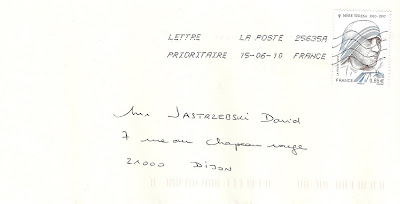 MÈRE TERESA 1910-1997
LETTRE LA POSTE 25635A
PRIORITAIRE 15-06-10 FRANCE
FRANCE 0,85€
Mr JASTRZEBSKI David
7 rue du chapeau rouge
21000 DIJON